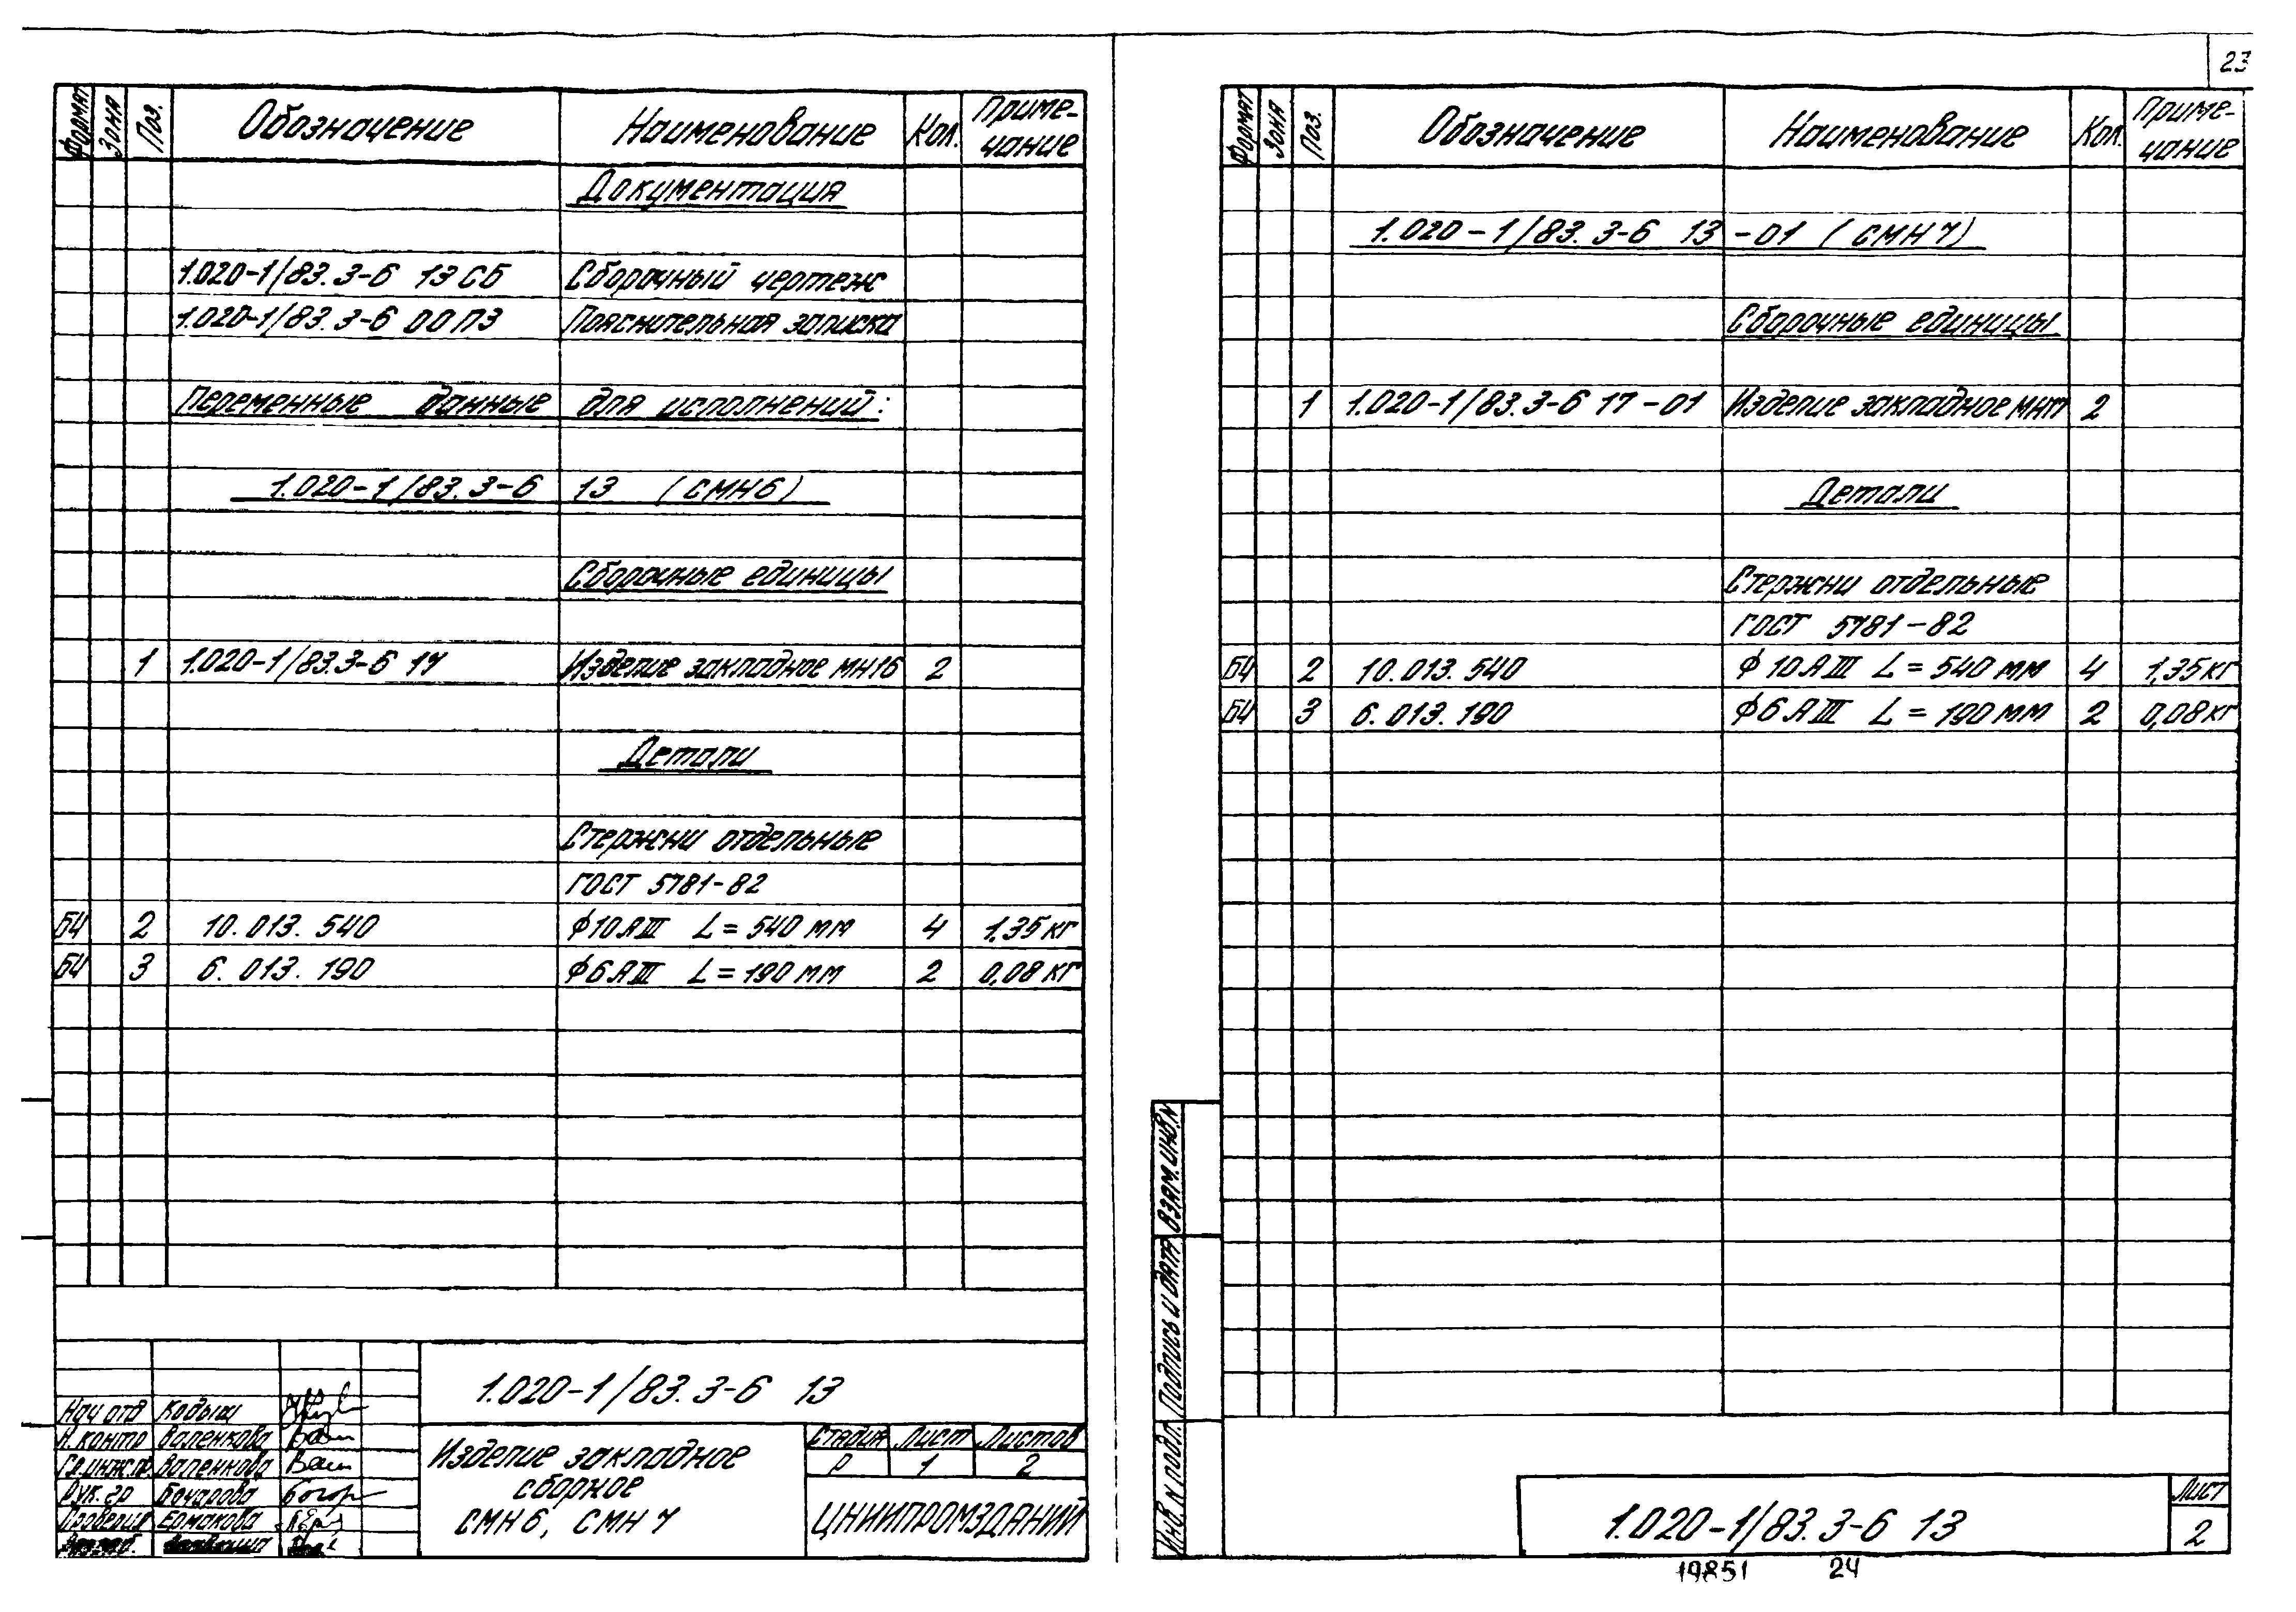 23
Формат Зона Поз. Обозначение Наименование Кол. Приме-
чание
Документация
1.020-1/83.3-6 13 СБ Сборочный чертеж
1.020-1/83.3-6 00 ПЗ Пояснительная записка
Переменные данные для исполнений:
1.020-1/83.3-6 13 (СМН6)
Сборочные единицы
1 1.020-1/83.3-6 17 Изделие закладное МН16 2
Детали
Стержни отдельные
ГОСТ 5781-82
БЧ 2 10.013.540 ф10АIII L=540мм 4 1,35кг
БЧ 3 6.013.190 ф6АIII L=190мм 2 0,08кг
1.020-1/83.3-6 13
Нач отд Кодыш
Н. контр Валенкова
Гл.инж.пр. Валенкова
Рук. гр Бочарова
Проверил Ермакова
Разраб.
Изделие закладное
сборное
СМН6, СМН7
Стадия Лист Листов
Р 1 2
ЦНИИПРОМЗДАНИЙ
Формат Зона Поз. Обозначение Наименование Кол. Приме-
чание
1.020-1/83.3-6 13 -01 (СМН7)
Сборочные единицы
1 1.020-1/83.3-6 17-01 Изделие закладное МН17 2
Детали
Стержни отдельные
ГОСТ 5781-82
БЧ 2 10.013.540 ф10АIII L=540мм 4 1,35кг
БЧ 3 6.013.190 ф6АIII L=190мм 2 0,08кг
Взам. инв. N
Подпись и дата
Инв. N подл.
1.020-1/83.3-6 13
Лист
2
19851 24